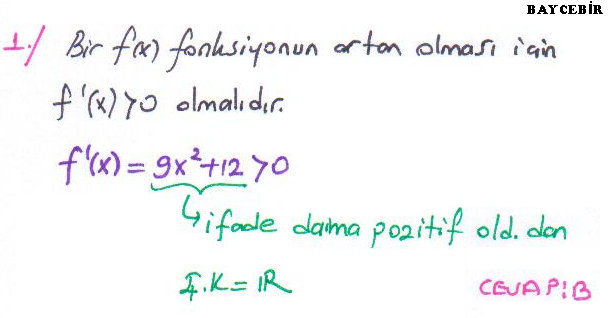 BAYCEBİR
1-/ Bir f(x) fonksiyonun artan olması için
f'(x)>0 olmalıdır.
f'(x) = 9x²+12 >0
↳ ifade daima pozitif old. dan
Ç.K = IR
CEVAP: B